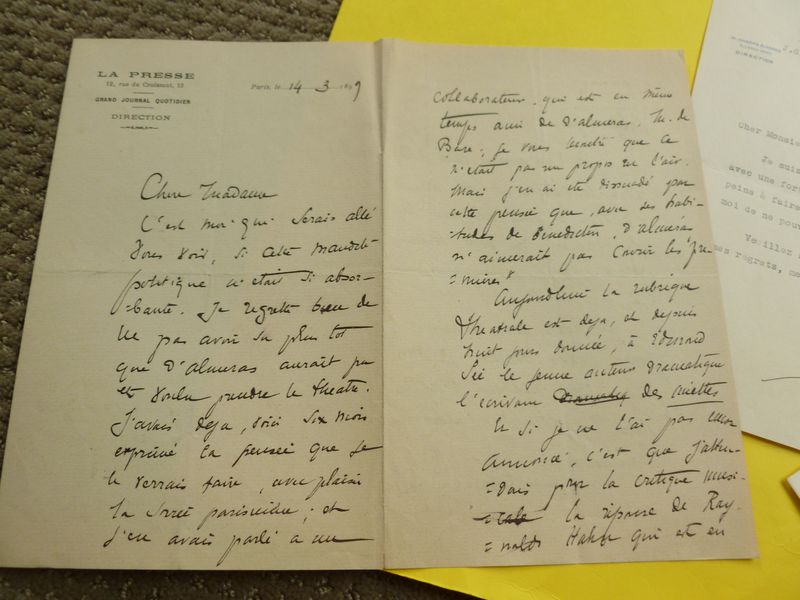 LA PRESSE
12, rue du Croissant, 12
GRAND JOURNAL QUOTIDIEN
DIRECTION
Paris, le 14 3 1899
Chere Madame
C'est moi qui serais allé
vous voir, si cette maudite
politique n'était si absor-
bante. Je regrette bien de
ne pas avoir su plus tôt
que d'Almeras aurait pu
et voulu prendre le théatre.
J'avais deja, voici six mois
exprimé la pensée que je
le verrais faire, avec plaisir
la soirée parisienne; et
j'en avais parlé a un
collaborateur, qui est en même
temps ami de d'Almeras, M. de
Base; je vous
n'était pas un propos en l'air.
Mais j'en ai été dissuadé par
cette pensée que, avec ses habi-
tudes de Bénédictin, d'Almeras
n'aimerait pas courir les "pre-
=mieres"
Aujourd'hui la rubrique
théatrale est deja, et depuis
huit jours donnée, à Edmond
Sée le jeune auteur dramatique
l'écrivain des Miettes
Et si je ne l'ai pas encore
annoncé, c'est que j'atten-
=dais pour la critique musi-
=cale la réponse de Ray-
=naldo Hahn qui est en
DIRECTION
Cher Monsie
Je suis
avec une for
peine à faire
moi de ne pouv
Veillez
mes regrets,